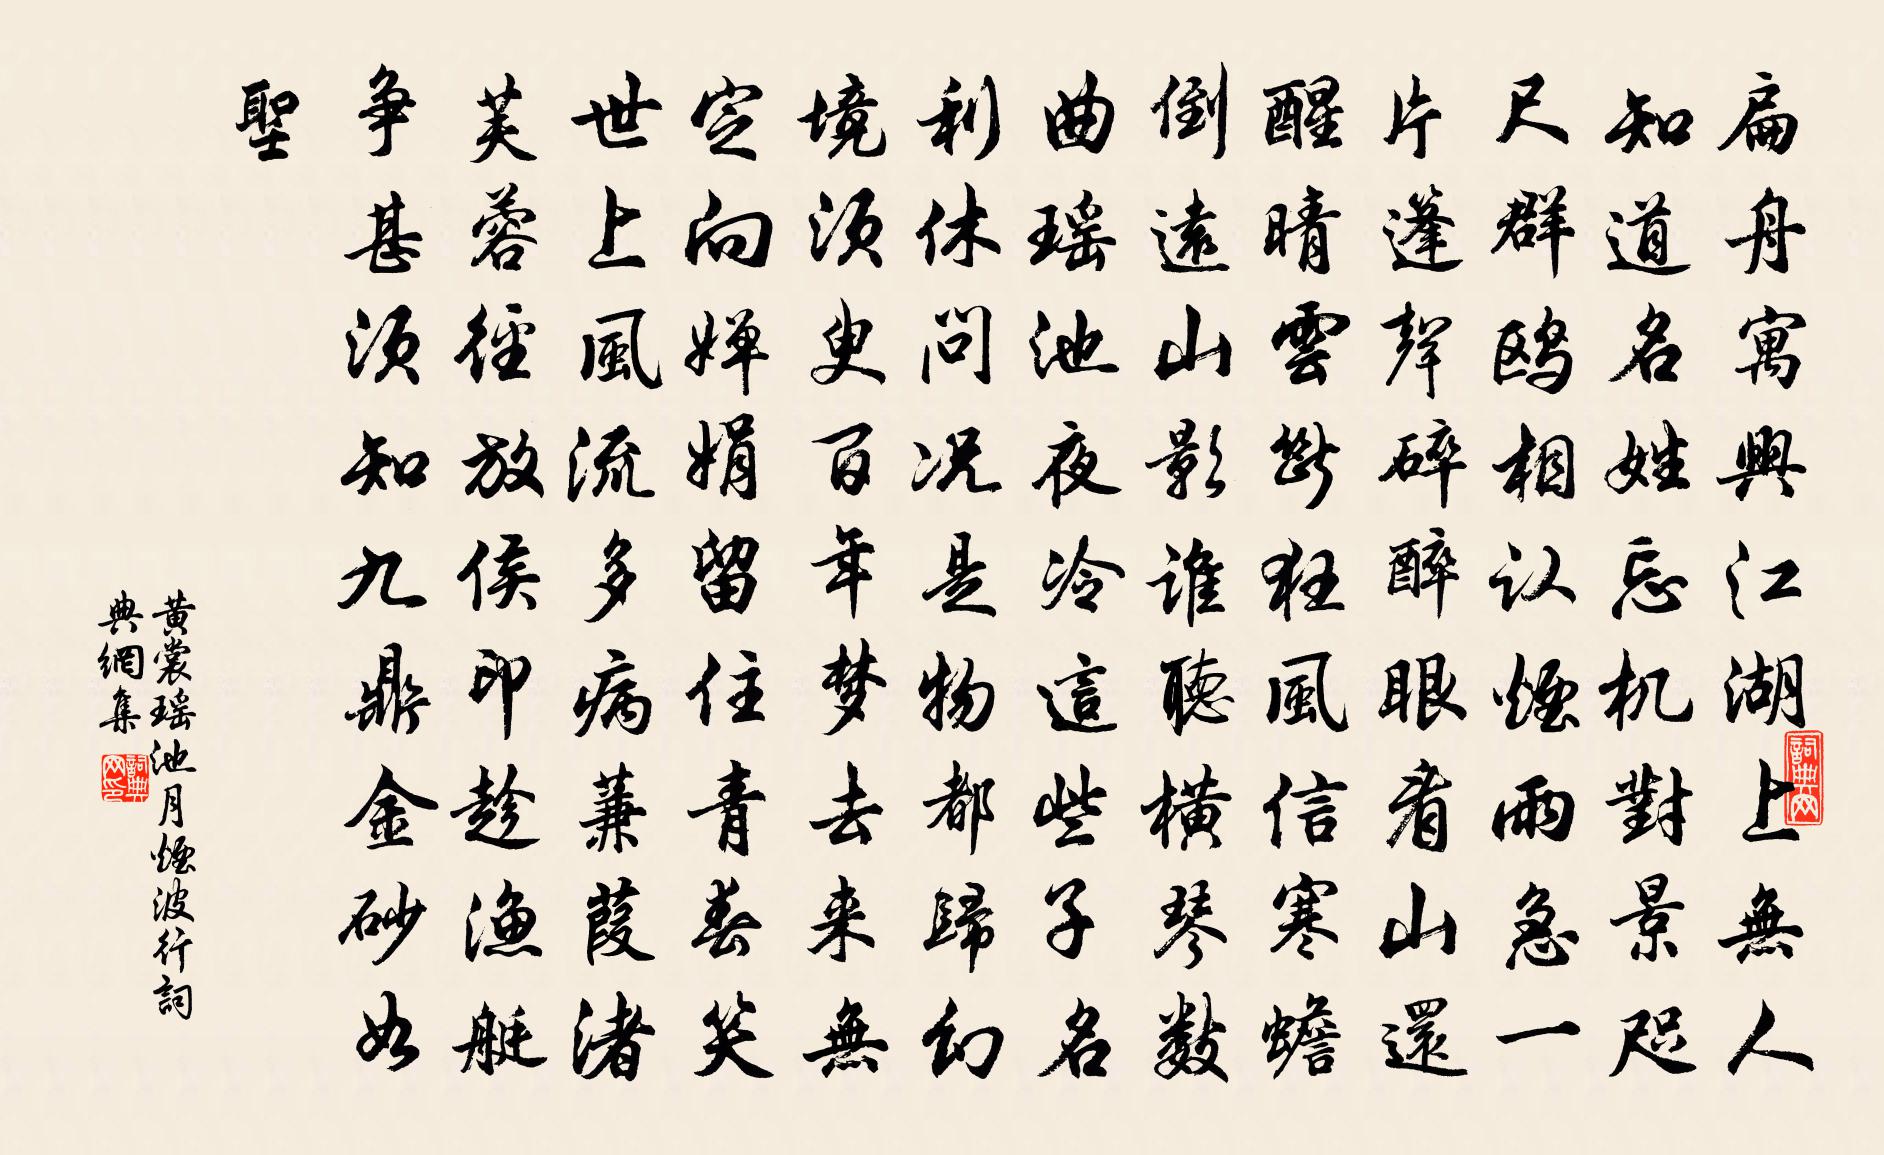 扁舟寓興江湖上無人
知道名姓忘机對景咫
尺群鸥相认煙雨急一
片蓬聲碎醉眼看山還
醒晴雲斷狂風信寒蟾
倒遠山影誰聽橫琴數
曲瑶池夜冷這些子名
利休问况是物都歸幻
境須臾百年梦去来無
定向嬋娟留住青春笑
世上風流多病蒹葭渚
芙蓉徑放侯印趁漁艇
争甚須知九鼎金砂如
聖
黄裳瑶池月煙波行詞
典網集
詞典网
詞典网印